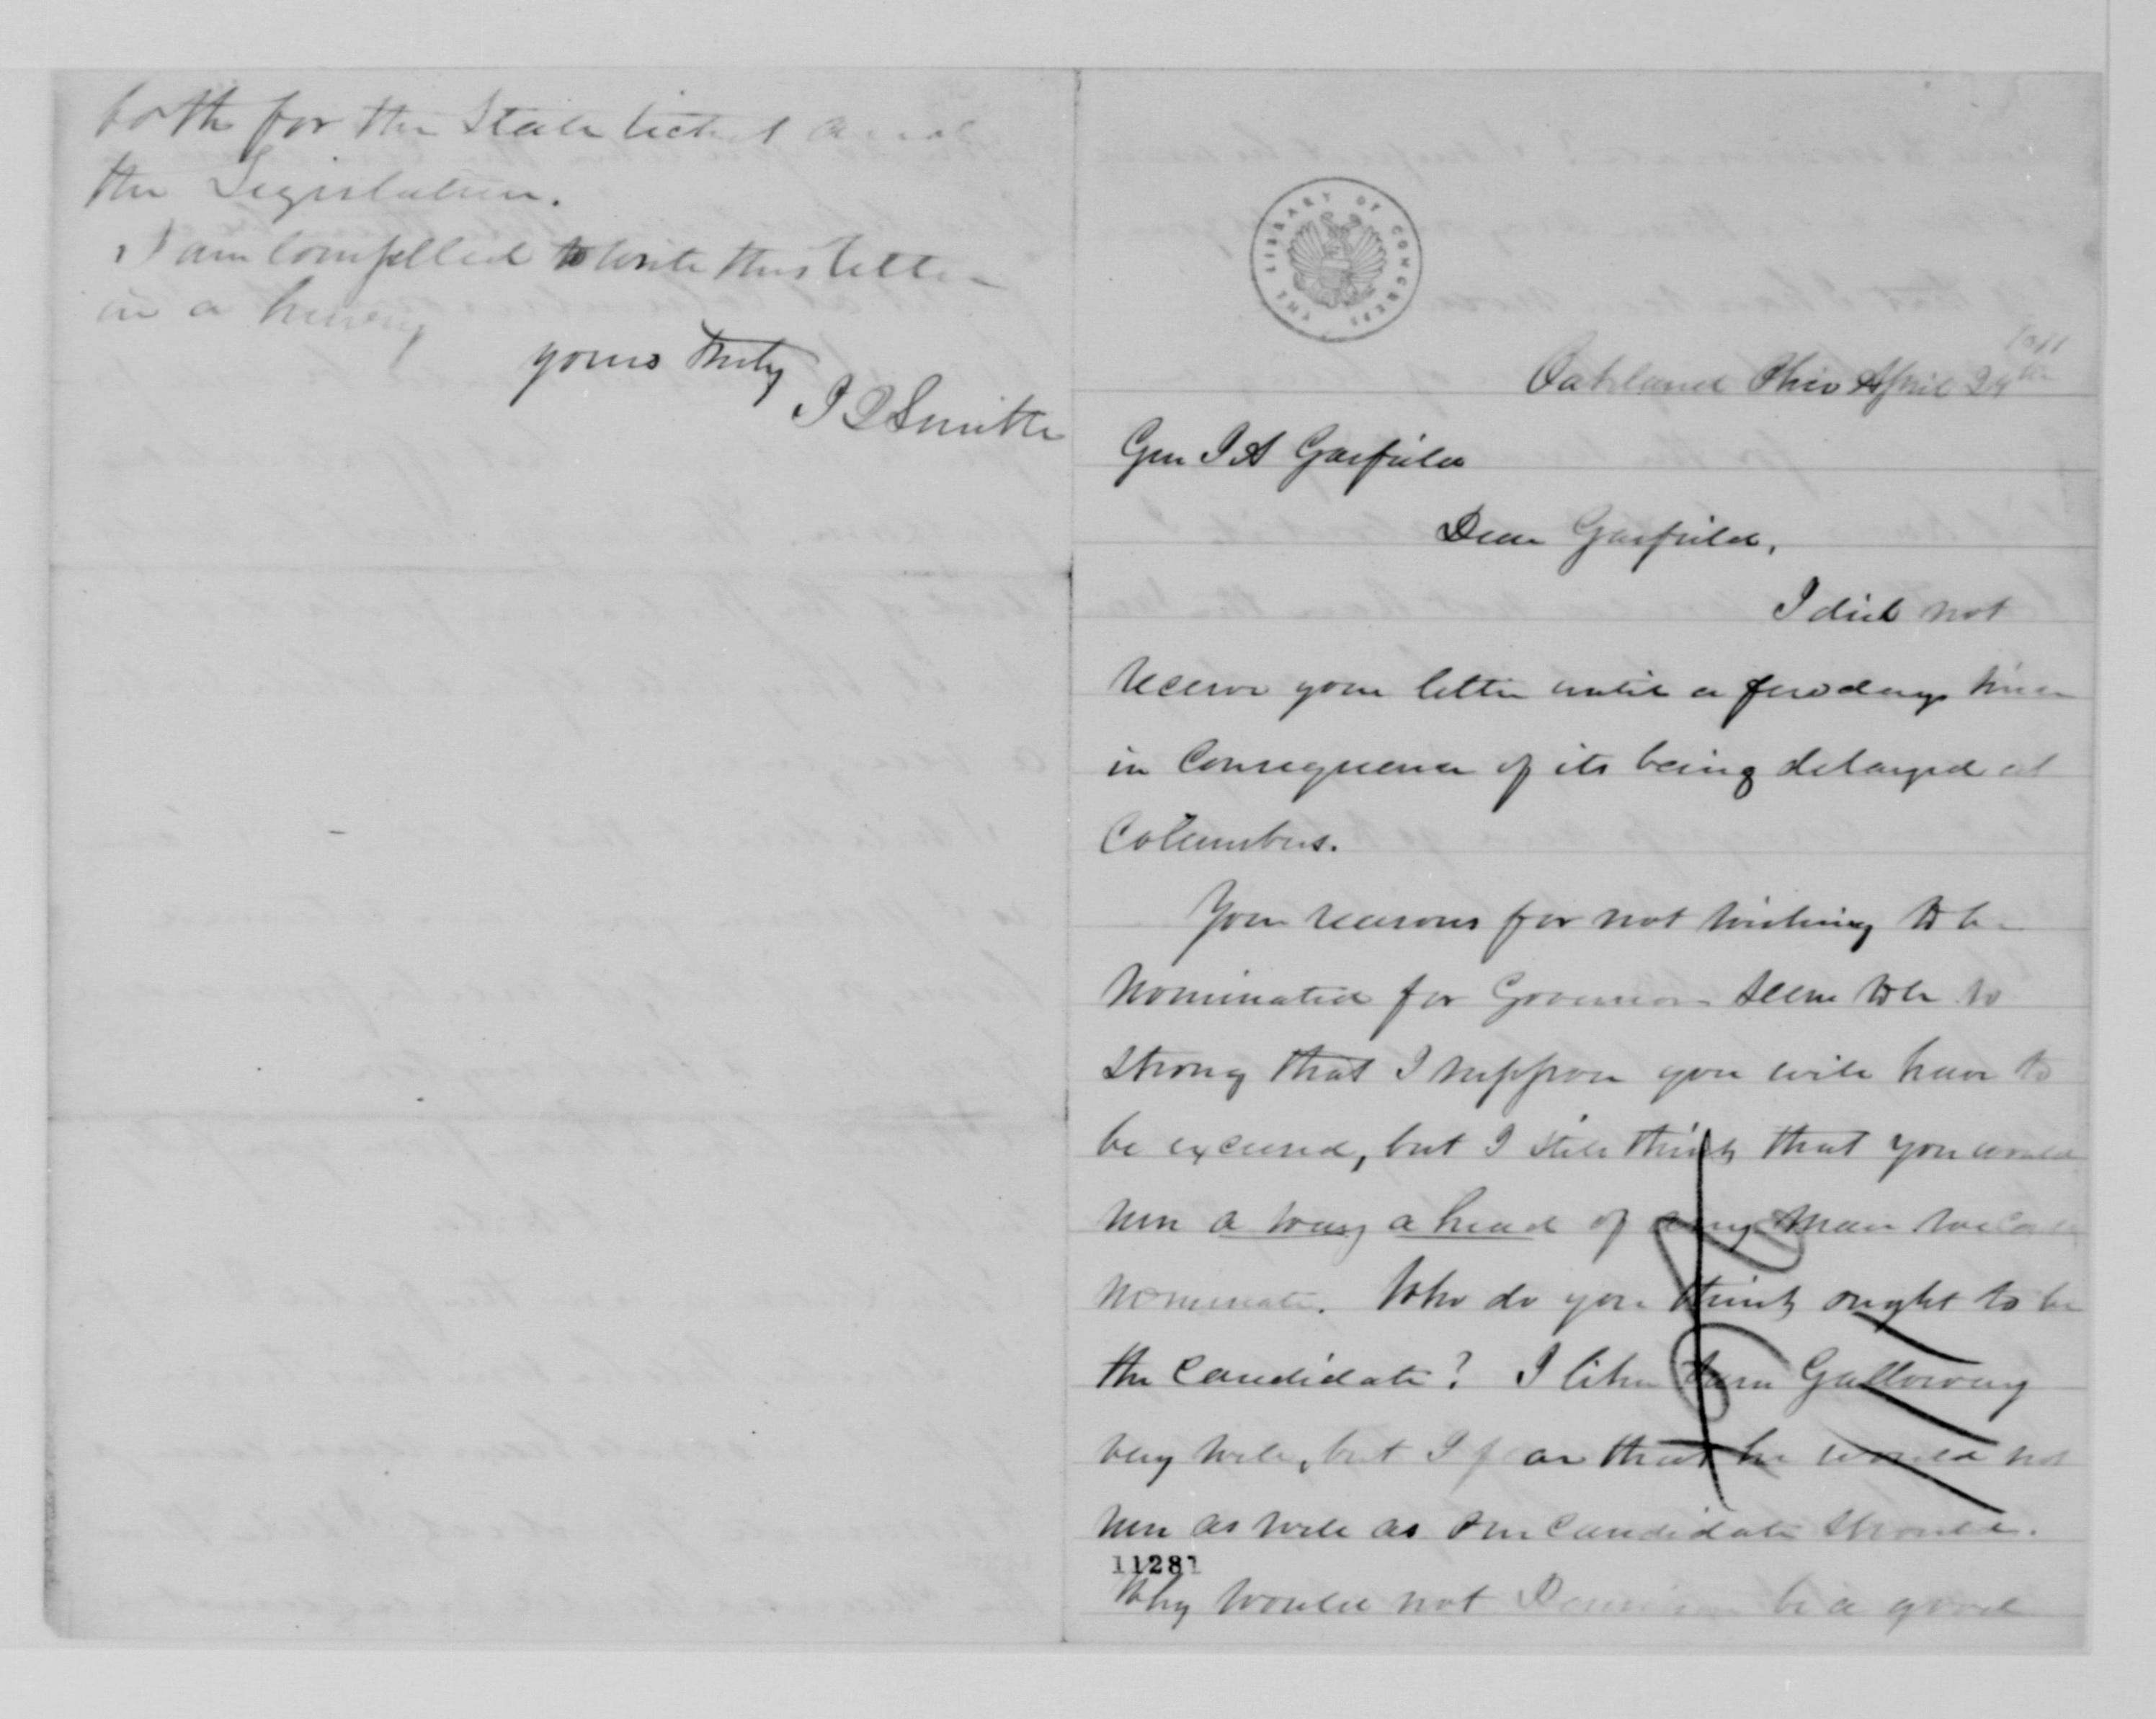 both for the State ticket and
the Legislature.
I am compelled to write this letter
in a hurry
yours truly
Smith
THE LIBRARY OF CONGRESS
Oakland Ohio April 24th
Gen J A Garfield
Dear Garfield,
I did not
receive your letter until a few days since
in consequence of its being delayed at
Columbus.
Your reasons for not wishing to be
nominated for Governor seem to be so
strong that I suppose you will have to
be excused, but I still think that you would
run a way a head of any man we could
nominate. Who do you think ought to be
the candidate? I like Sam Galloway
very well, but I fear that he would not
run as well as our candidate should.
11281
Why would not Dennison be a good